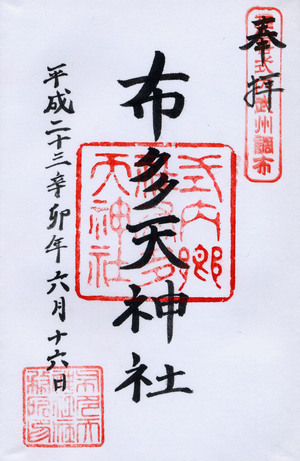 奉拝
武州調布
布多天神社
式内郷社
布多天神社
平成二十三辛卯年六月十六日